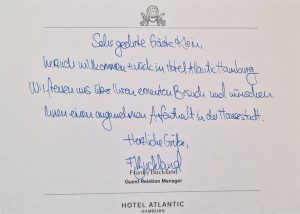 Sehr geehrte Gäste Klein,
willkommen zurück im Hotel Atlantic Hamburg
Wir freuen uns über Ihren erneuten Besuch und wünschen
Ihnen einen angenehmen Aufenthalt in der Hansestadt.
Herzliche Grüße,
F. Buckland
Franky Buckland
Guest Relation Manager
HOTEL ATLANTIC
HAMBURG